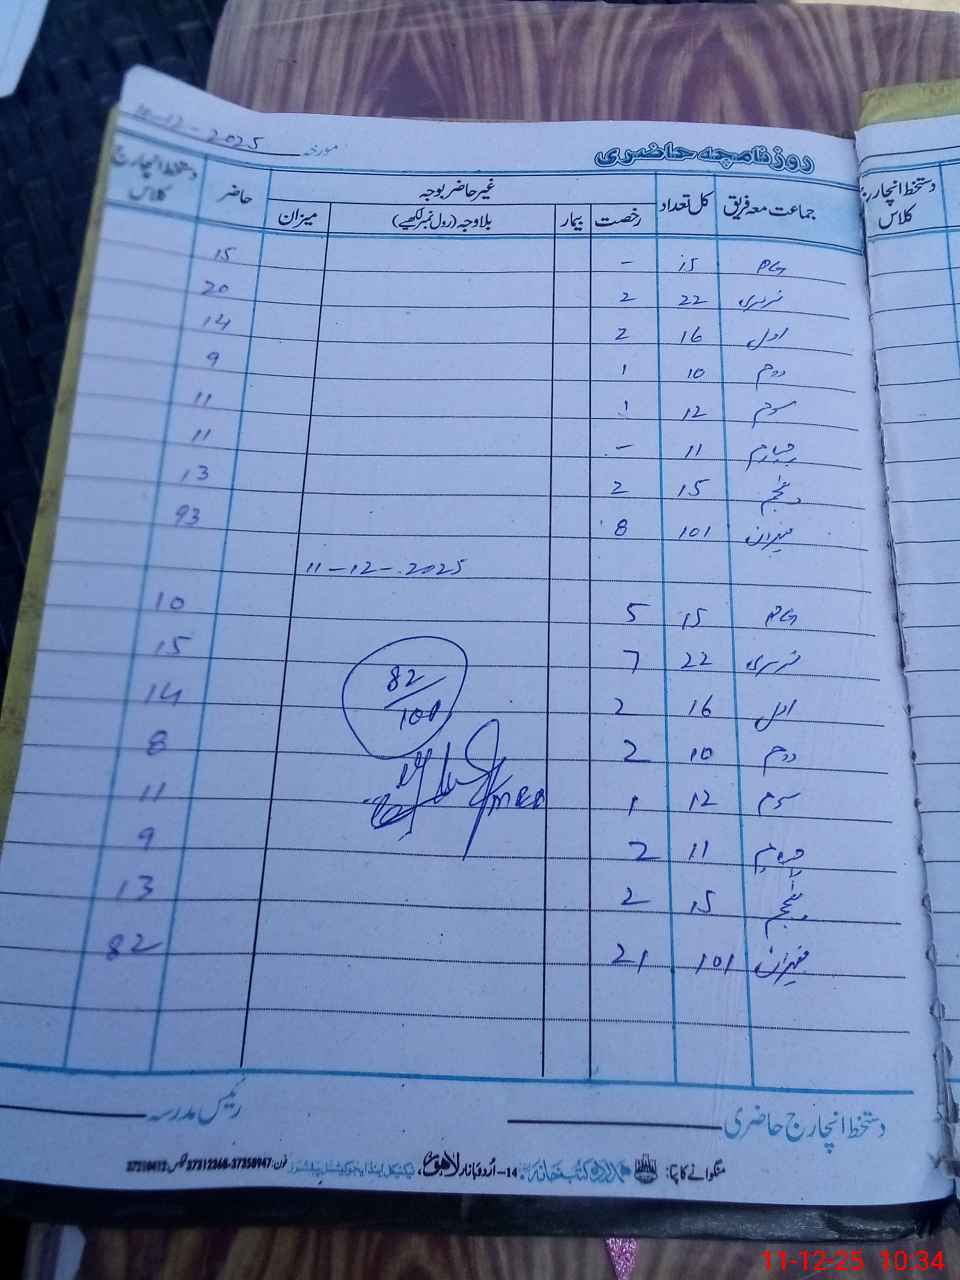 روزنامچہ حاضری مورخہ 10-12-2025
جماعت معہ فریق کل تعداد غیر حاضر بوجہ حاضر دستخط انچارج کلاس
رخصت بیمار بلا وجہ (رول نمبر لکھیے) میزان
دستخط انچارج کلاس
خام 15 - 15
نرسری 22 2 20
اول 16 2 14
دوم 10 1 9
سوم 12 1 11
چہارم 11 - 11
پنجم 15 2 13
میزان 101 8 93
11-12-2025
خام 15 5 10
نرسری 22 7 15
اول 16 2 14
82/101
دوم 10 2 8
سوم 12 1 11
چہارم 11 2 9
پنجم 15 2 13
میزان 101 21 82
دستخط انچارج حاضری رئیس مدرسہ
منگوانے کا پتا: ہمدرد کتب خانہ 14-اُردو بازار لاہور، فون: 37358947-37312368 فیکس: 37210412
11-12-25 10:34